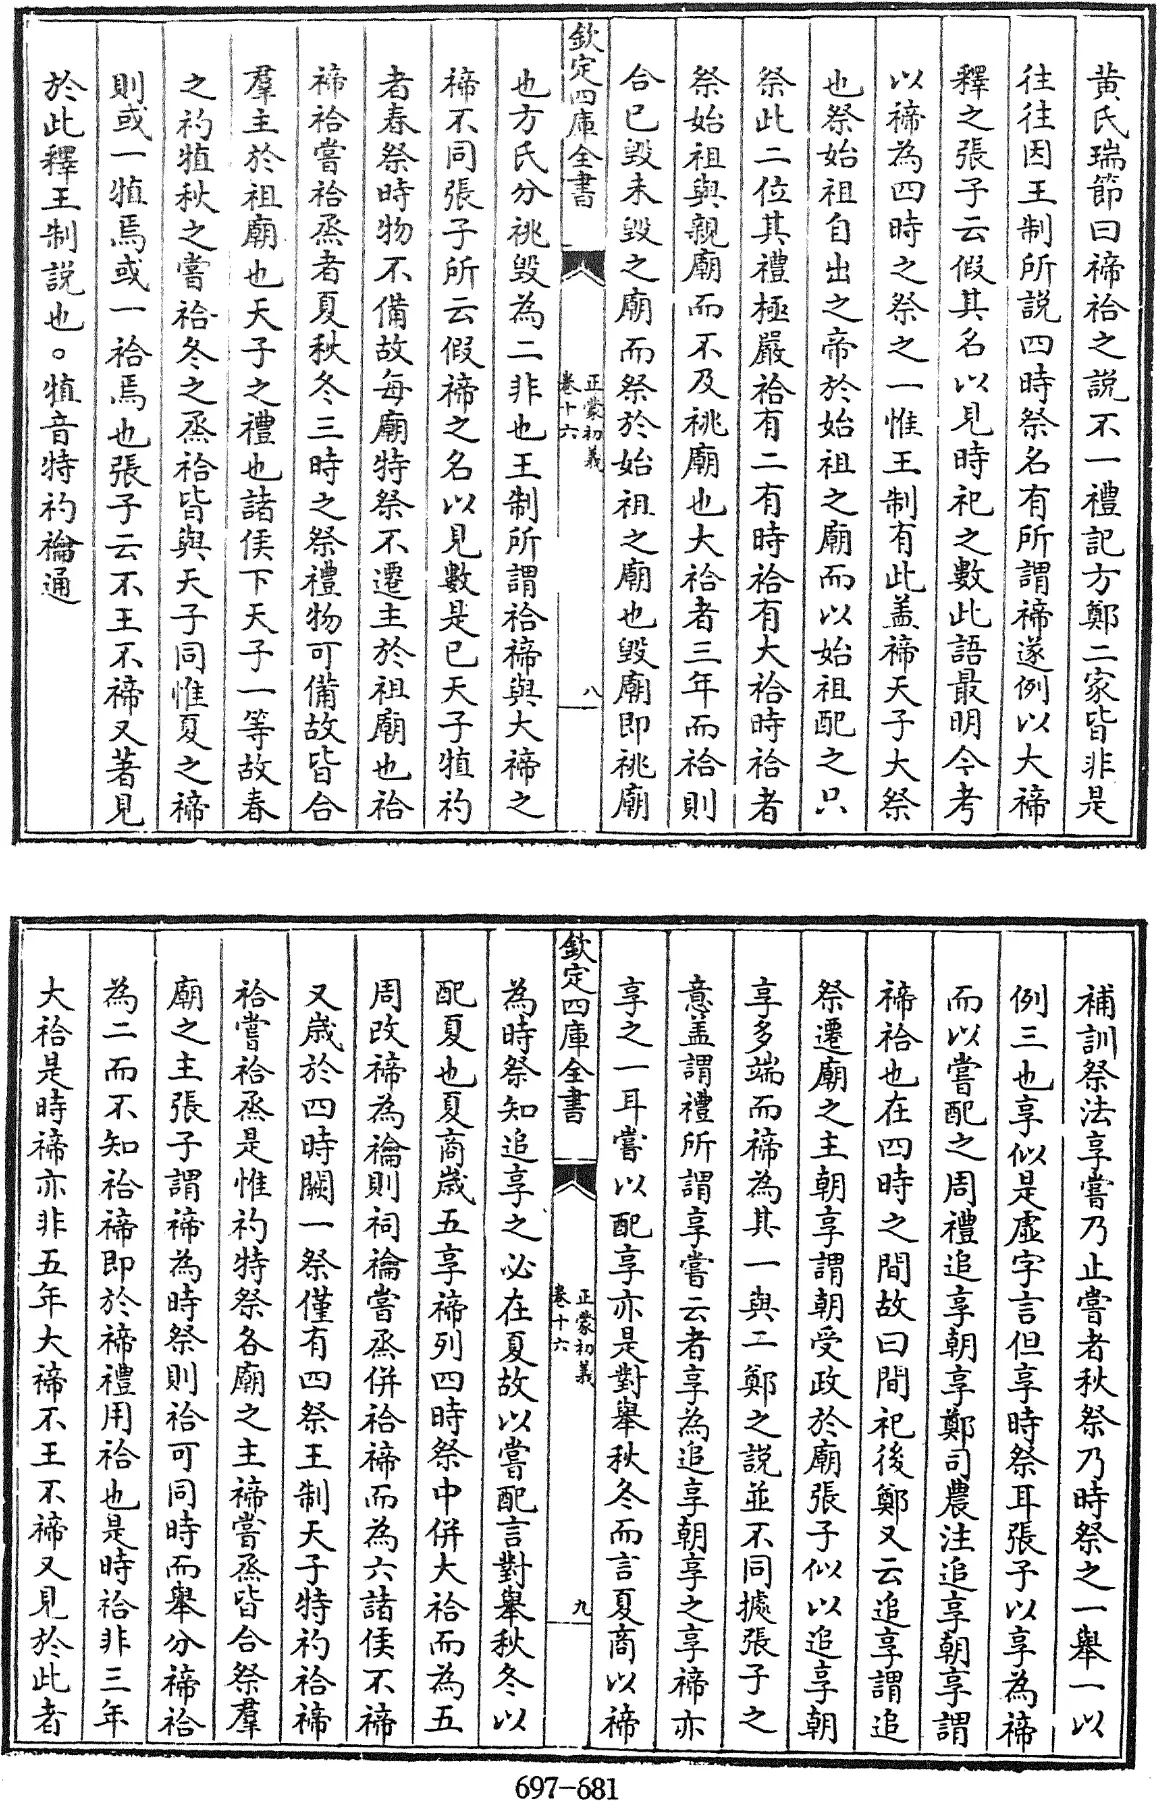 黄氏瑞節曰禘祫之說不一禮記方鄭二家皆非是
往往因王制所説四時祭名有所謂禘遂例以大禘
釋之張子云假其名以見時祀之數此語最明今考
以禘為四時之祭之一惟王制有此盖禘天子大祭
也祭始祖自出之帝於始祖之廟而以始祖配之只
祭此二位其禮極嚴祫有二有時祫有大祫時祫者
祭始祖與親廟而不及祧廟也大祫者三年而祫則
合已毁未毁之廟而祭於始祖之廟也毁廟即祧廟
欽定四庫全書
正蒙初義
卷十六
八
也方氏分祧毁為二非也王制所謂祫禘與大禘之
禘不同張子所云假禘之名以見數是已天子犆礿
者春祭時物不備故每廟特祭不遷主於祖廟也祫
禘祫嘗祫烝者夏秋冬三時之祭禮物可備故皆合
羣主於祖廟也天子之禮也諸侯下天子一等故春
之礿犆秋之嘗祫冬之烝祫皆與天子同惟夏之禘
則或一犆焉或一祫焉也張子云不王不禘又著見
於此釋王制説也○犆音特礿禴通
補訓祭法享嘗乃止嘗者秋祭乃時祭之一舉一以
例三也享似是虛字言但享時祭耳張子以享為禘
而以嘗配之周禮追享朝享鄭司農注追享朝享謂
禘祫也在四時之間故曰間祀後鄭又云追享謂追
祭遷廟之主朝享謂朝受政於廟張子似以追享朝
享多端而禘為其一與二鄭之説並不同據張子之
意盖謂禮所謂享嘗云者享為追享朝享之享禘亦
享之一耳嘗以配享亦是對舉秋冬而言夏商以禘
欽定四庫全書
正蒙初義
卷十六
九
為時祭知追享之必在夏故以嘗配言對舉秋冬以
配夏也夏商歲五享禘列四時祭中併大祫而為五
周改禘為禴則祠禴嘗烝併祫禘而為六諸侯不禘
又歲於四時闕一祭僅有四祭王制天子特礿祫禘
祫嘗祫烝是惟礿特祭各廟之主禘嘗烝皆合祭羣
廟之主張子謂禘為時祭則祫可同時而舉分禘祫
為二而不知祫禘即於禘禮用祫也是時祫非三年
大祫是時禘亦非五年大禘不王不禘又見於此者
697-681